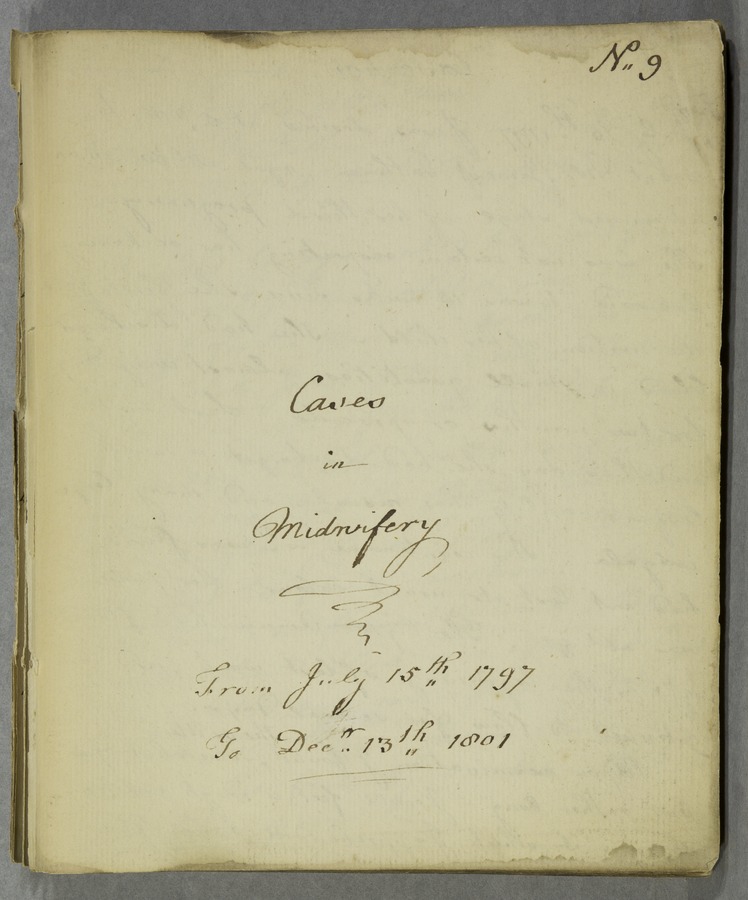 No. 9
Cases
in
Midwifery
From July 15th 1797
To Decr. 13th 1801